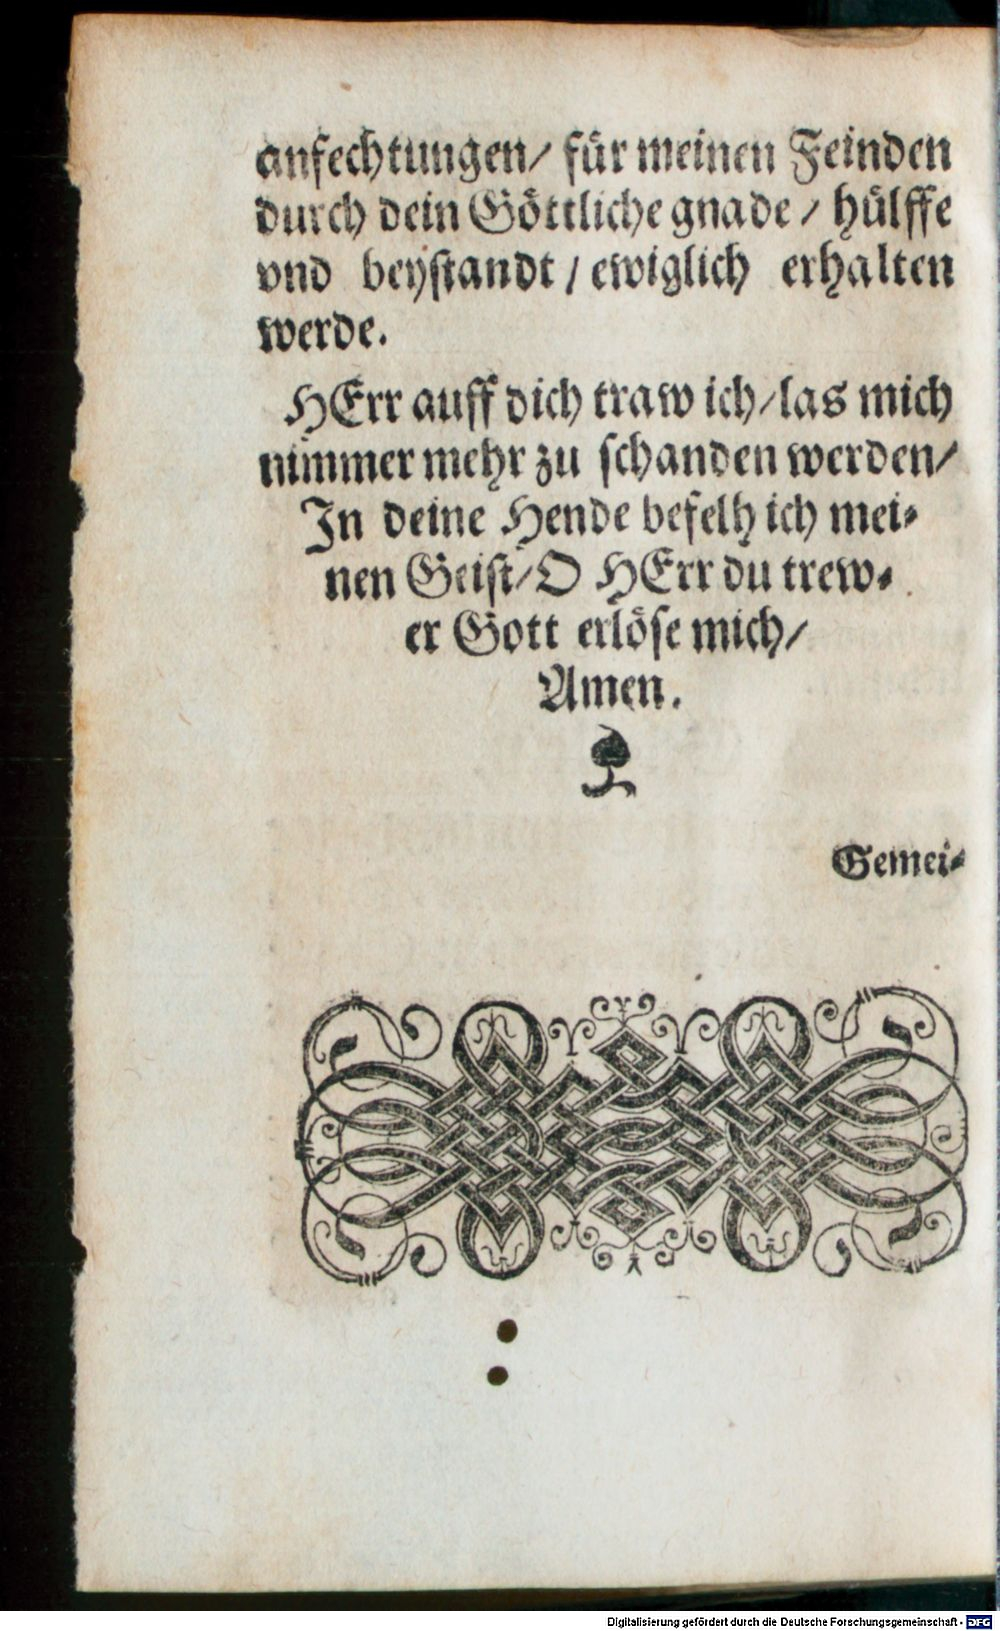 anfechtungen/ für meinen Feinden
durch dein Göttliche gnade / hülffe
vnd beystandt / ewiglich erhalten
werde.
HErr auff dich traw ich/las mich
nimmer mehr zu schanden werden/
In deine Hende befelh ich mei-
nen Geist/O HErr du trew-
er Gott erlöse mich/
Amen.
Gemei-
Digitalisierung gefördert durch die Deutsche Forschungsgemeinschaft - DFG